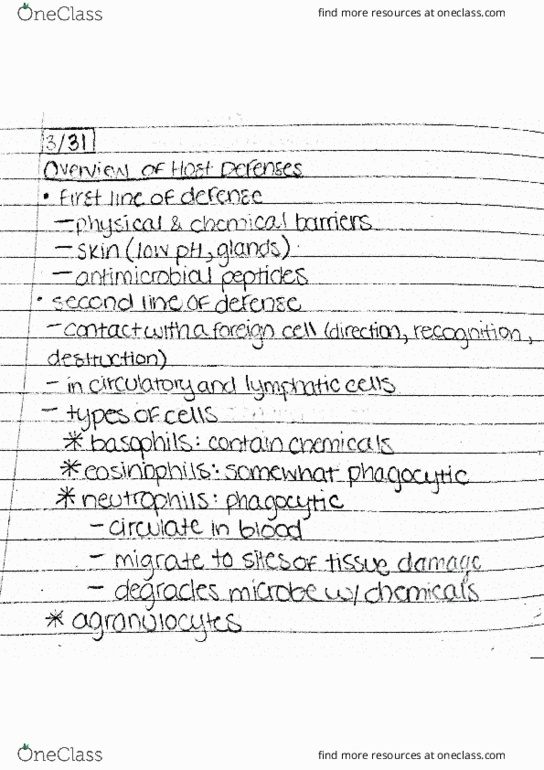 OneClass
find more resources at oneclass.com
3/31
Overview of Host Defenses
• First line of defense
– physical & chemical barriers
– skin (low pH, glands)
– antimicrobial peptides
• second line of defense
– contact with a foreign cell (direction, recognition,
destruction)
– in circulatory and lymphatic cells
– types of cells
* basophils: contain chemicals
* eosinophils: somewhat phagocytic
* neutrophils: phagocytic
– circulate in blood
– migrate to sites of tissue damage
– degrades microbe w/ chemicals
* agranulocytes
OneClass
find more resources at oneclass.com